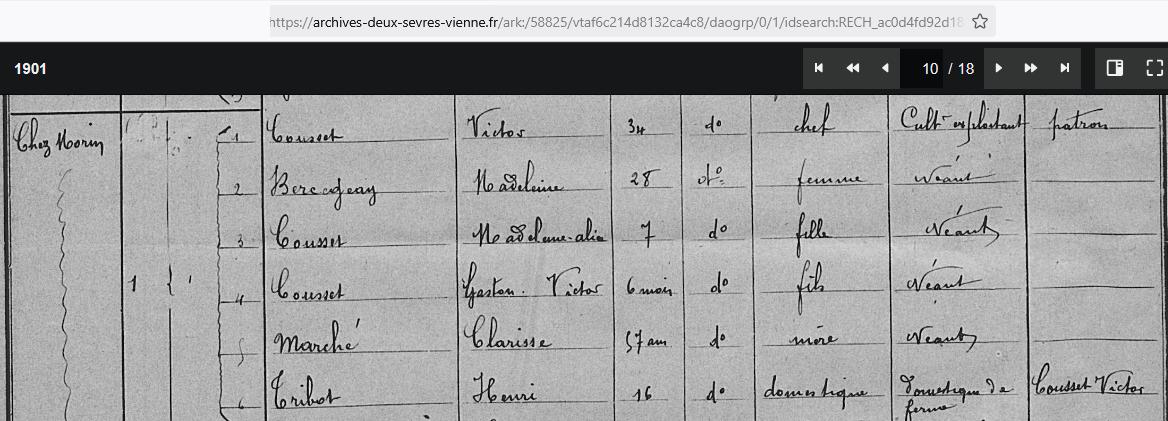 https://archives-deux-sevres-vienne.fr/ark:/58825/vtaf6c214d8132ca4c8/daogrp/0/1/idsearch:RECH_ac0d4fd92d18
1901 10 / 18
Chez Morin 1 Cousset Victor 34 do chef Cultr exploitant patron
2 Madeleine 28 do femme Néant
3 Cousset 7 do fille Néant
1 1 4 Cousset Gaston Victor 6 mois do fils Néant
5 Marché Clarisse 57 ans do mère Néant
6 Tribot Henri 16 do domestique domestique de ferme Cousset Victor